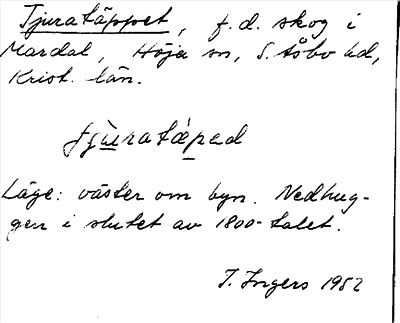 Tjuratäppet, f.d. skog i
Mardal, Höja sn, S. Åsbo hd,
Krist. län.
tjuratäped
Läge: väster om byn. Nedhug-
gen i slutet av 1800-talet.
I. Ingers 1952